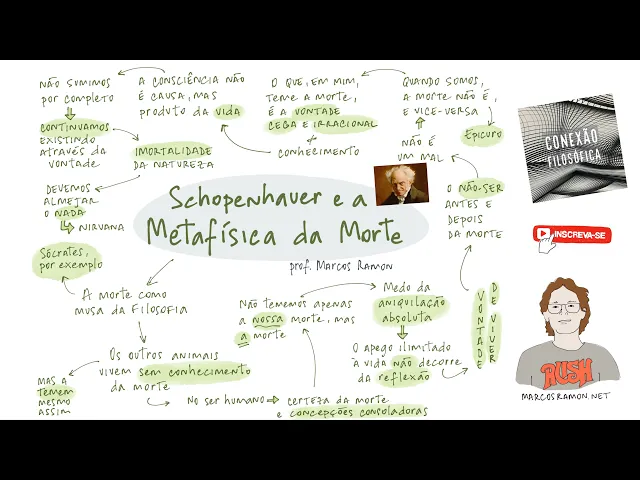 Schopenhauer e a
Metafísica da Morte
prof. Marcos Ramon
A morte como
musa da filosofia
Sócrates,
por exemplo
Os outros animais
vivem sem conhecimento
da morte
mas a
temem
mesmo
assim
No ser humano
certeza da morte
e concepções consoladoras
Não tememos apenas
a nossa morte, mas
a morte
Medo da
aniquilação
absoluta
O apego ilimitado
à vida não decorre
da reflexão
VONTADE
DE VIVER
O não-ser
antes e
depois
da morte
não é
um mal
Quando somos,
a morte não é,
e vice-versa
Epicuro
O que, em mim,
teme a morte,
é a vontade
cega e irracional
≠
conhecimento
A consciência não
é causa, mas
produto da vida
não sumimos
por completo
continuamos
existindo
através da
vontade
imortalidade
da natureza
Devemos
almejar
o nada
nirvana
CONEXÃO
FILOSÓFICA
INSCREVA-SE
RUSH
MARCOSRAMON.NET